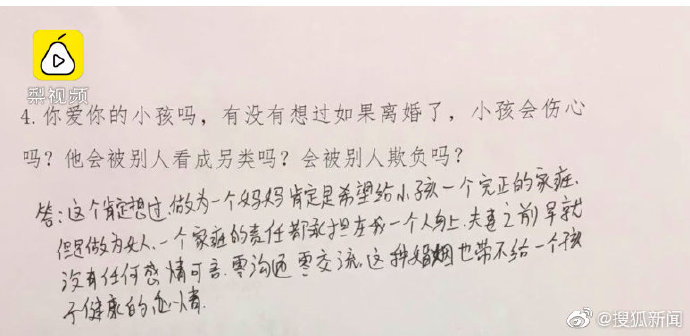 梨视频
4.你爱你的小孩吗，有没有想过如果离婚了，小孩会伤心
吗？他会被别人看成另类吗？会被别人欺负吗？
答:这个肯定想过.做为一个妈妈肯定是希望给小孩一个完正的家庭.
但是做为女人.一个家庭的责任都承担在我一个人身上.夫妻之前早就
没有任何感情可言.零沟通零交流.这种婚姻也带不给一个孩
子健康的心情.
@搜狐新闻